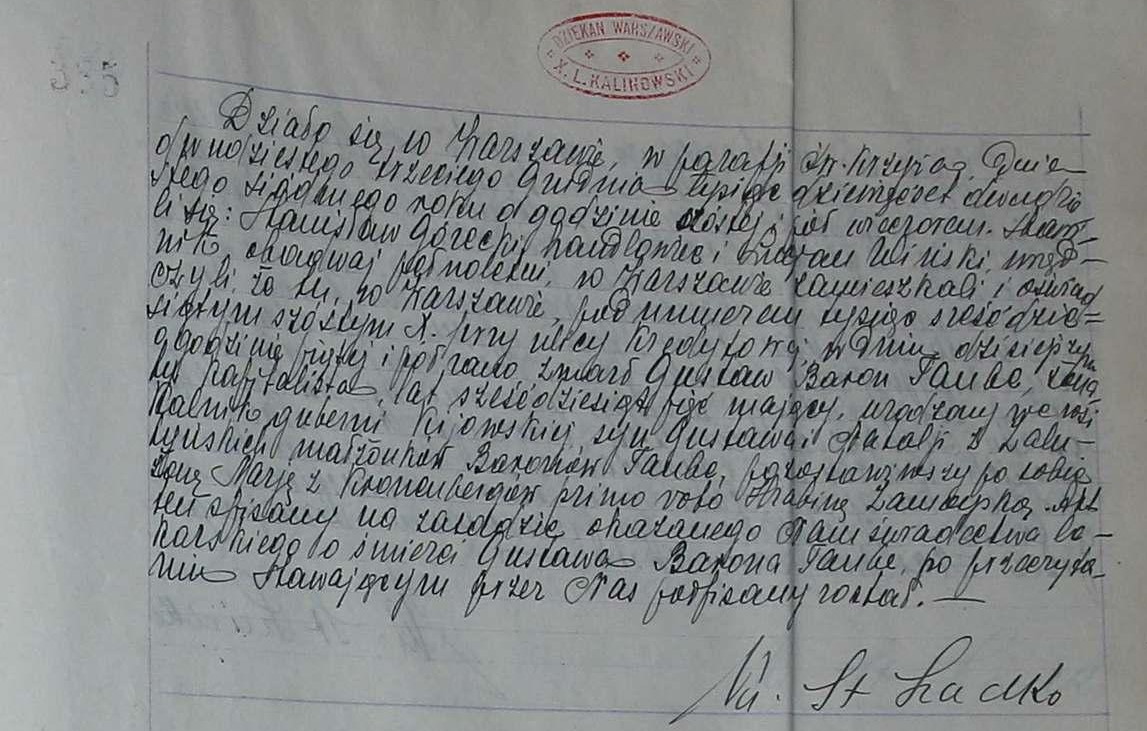 995
DZIEKAN WARSZAWSKI
X. L. KALINOWSKI
Działo się w Warszawie, w parafji Św. Krzyża, Dnia
dwudziestego trzeciego Grudnia tysiąc dziewięćset dwudzie
stego siódmego roku o godzinie szóstej i pół wieczorem. Stawi-
li się: Stanisław Górecki, handlowiec i Lucjan Wilski, urzęd-
nik obadwaj pełnoletni, w Warszawie zamieszkali i oświad
czyli, że tu, w Warszawie, pod numerem tysiąc sześćdzie=
siątym szóstym X. przy ulicy Kredytowej w dniu dzisiejszym
o godzinie piątej i pół rano zmarł Gustaw Baron Taube, żona
ty kapitalista, lat sześćdziesiąt pięć mający, urodzony we wsi
Kalnik gubernii Kijowskiej syn Gustawa i Natalji z
małżonków Baronów Taube, pozostawiwszy po sobie
żonę Marję z Kronenbergów primo voto Hrabinę Zamoyską. Akt
ten spisany na zasadzie okazanego Nam świadectwa le-
karskiego o śmierci Gustawa Barona Taube, po przeczyta-
niu Stawającym przez Nas podpisany został. —
St